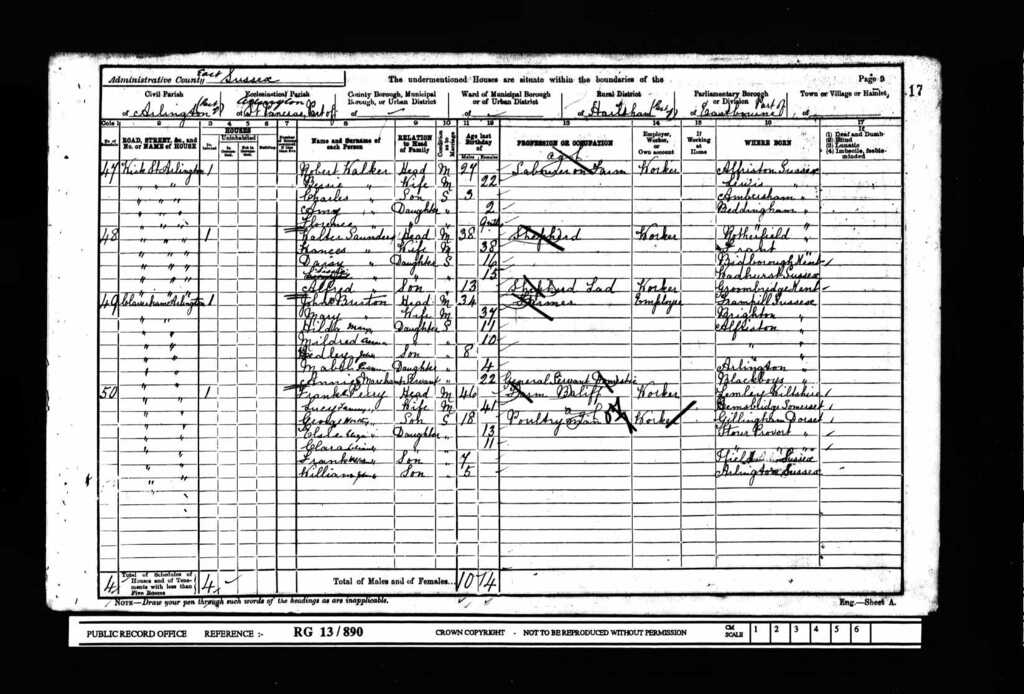 Administrative County East Sussex
The undermentioned Houses are situate within the boundaries of the
Page 9
17
Civil Parish
Ecclesiastical Parish
County Borough, Municipal Borough, or Urban District
Ward of Municipal Borough or of Urban District
Rural District
Parliamentary Borough or Division
Town or Village or Hamlet,
of Arlington (Part of)
of St Pancras, Part of
of
of
of Hailsham (Part of)
of Eastbourne Part of
of
ROAD, STREET, &c., and No. or NAME of HOUSE
HOUSES
Uninhabited
Name and Surname of each Person
RELATION to Head of Family
Age last Birthday of
Males Females
PROFESSION OR OCCUPATION
Employer, Worker, or Own account
If Working at Home
WHERE BORN
(1) Deaf and Dumb
(2) Blind
(3) Lunatic
(4) Imbecile, feeble-minded
47 Arlington 1 Robert Walker Head M 27 Labourer on Farm Worker Alfriston Sussex
" " Bessie " Wife M 22 Lewis "
" " Charles " Son S 3
" " Amy " Daughter " 2 Beddingham "
" " Florence " " "
48 " " 1 Walter Saunders Head M 38 Shepherd Worker Rotherfield "
" " Frances " Wife M 38 Frant "
" " Daisy " Daughter S 16 Bidborough Kent
" " " " 15 Wadhurst Sussex
" " Alfred " Son " 13 Shepherd Lad Worker Groombridge Kent
49 Arlington 1 John Bruton Head M 34 Farmer Employer Sussex
" " Mary " Wife M 37 Brighton "
" " Hilda Mary Daughter S 11 Alfriston "
" " Mildred " " 10 " "
" " Son " 8 " "
" " Mabel Daughter " 4 Arlington "
" " Annie Marchant Servant " 22 General Servant Domestic Blackboys "
50 " " 1 Frank Perry Head M 46 Farm Baliff Worker Wiltshire
" " Lucy Wife M 41 Somerset
" " George Son S 18 Poultry Worker Gillingham Dorset
" " Daughter " 13 Stour Provost "
" " Clara " " 11 " "
" " Frank Son " 7 Sussex
" " William Son " 5 Arlington Sussex
4 Total of Schedules of Houses and of Tenements with less than Five Rooms 4
Total of Males and of Females... 10 14
NOTE—Draw your pen through such words of the headings as are inapplicable.
Eng.—Sheet A.
PUBLIC RECORD OFFICE REFERENCE :- RG 13/890 CROWN COPYRIGHT - NOT TO BE REPRODUCED WITHOUT PERMISSION CM SCALE 1 2 3 4 5 6